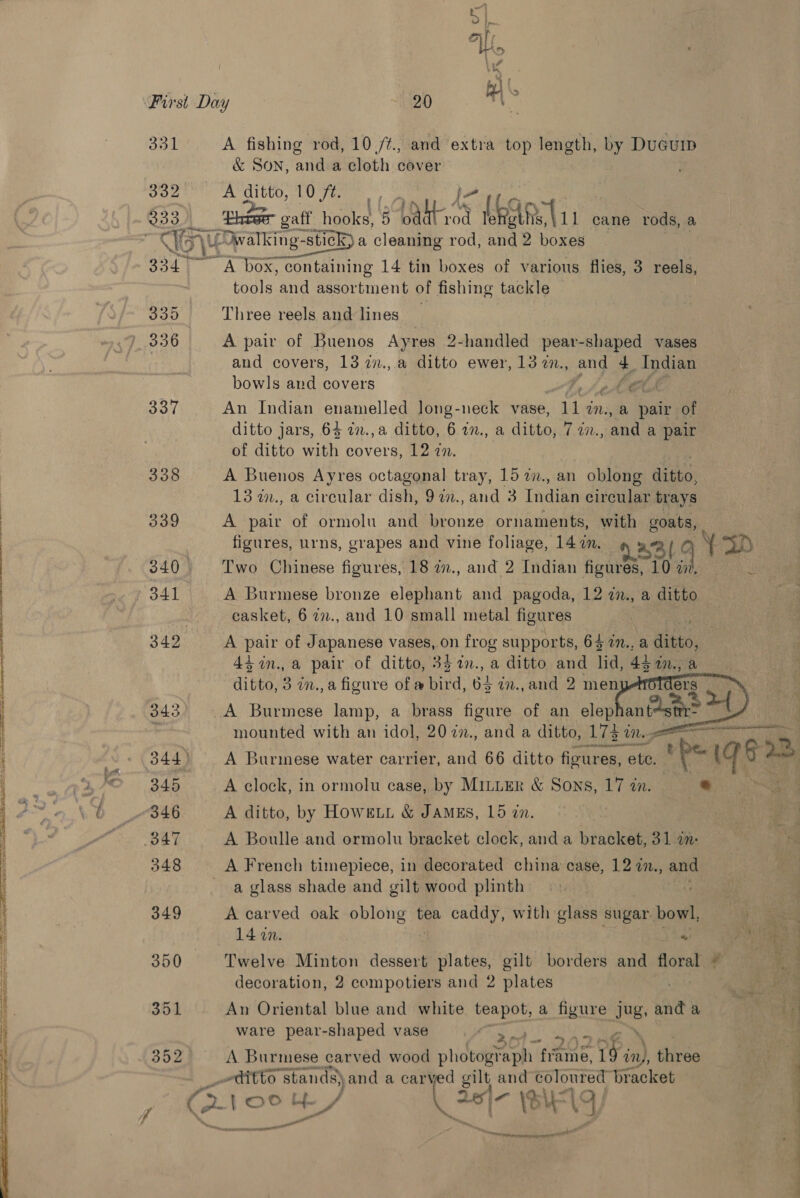 First Day 20
331 A fishing rod, 10 ft., and extra top length, by DUGUID
& SON, and a cloth cover
332 A ditto, 10 ft.
333 Three gaff hooks, 5 odd rod lengths, 11 cane rods, a
walking-stick, a cleaning rod, and 2 boxes
334 A box, containing 14 tin boxes of various flies, 3 reels,
tools and assortment of fishing tackle
335 Three reels and lines
336 A pair of Buenos Ayres 2-handled pear-shaped vases
and covers, 13 in., a ditto ewer, 13 in., and 4 Indian
bowls and covers
337 An Indian enamelled long-neck vase, 11 in., a pair of
ditto jars, 6½ in., a ditto, 6 in., a ditto, 7 in., and a pair
of ditto with covers, 12 in.
338 A Buenos Ayres octagonal tray, 15 in., an oblong ditto,
13 in., a circular dish, 9 in., and 3 Indian circular trays
339 A pair of ormolu and bronze ornaments, with goats,
figures, urns, grapes and vine foliage, 14 in.
340 Two Chinese figures, 18 in., and 2 Indian figures, 10 in.
341 A Burmese bronze elephant and pagoda, 12 in., a ditto
casket, 6 in., and 10 small metal figures
342 A pair of Japanese vases, on frog supports, 6½ in., a ditto,
4½ in., a pair of ditto, 3½ in., a ditto and lid, 4½ in., a
ditto, 3 in., a figure of a bird, 6½ in., and 2 menu-holders
343 A Burmese lamp, a brass figure of an elephant-
mounted with an idol, 20 in., and a ditto, 17½ in.
344 A Burmese water carrier, and 66 ditto figures, etc.
345 A clock, in ormolu case, by MILLER & SONS, 17 in.
346 A ditto, by HOWELL & JAMES, 15 in.
347 A Boulle and ormolu bracket clock, and a bracket, 31 in.
348 A French timepiece, in decorated china case, 12 in., and
a glass shade and gilt wood plinth
349 A carved oak oblong tea caddy, with glass sugar bowl,
14 in.
350 Twelve Minton dessert plates, gilt borders and floral
decoration, 2 compotiers and 2 plates
351 An Oriental blue and white teapot, a figure jug, and a
ware pear-shaped vase
352 A Burmese carved wood photograph frame, 19 in., three
ditto stands, and a carved gilt and coloured bracket